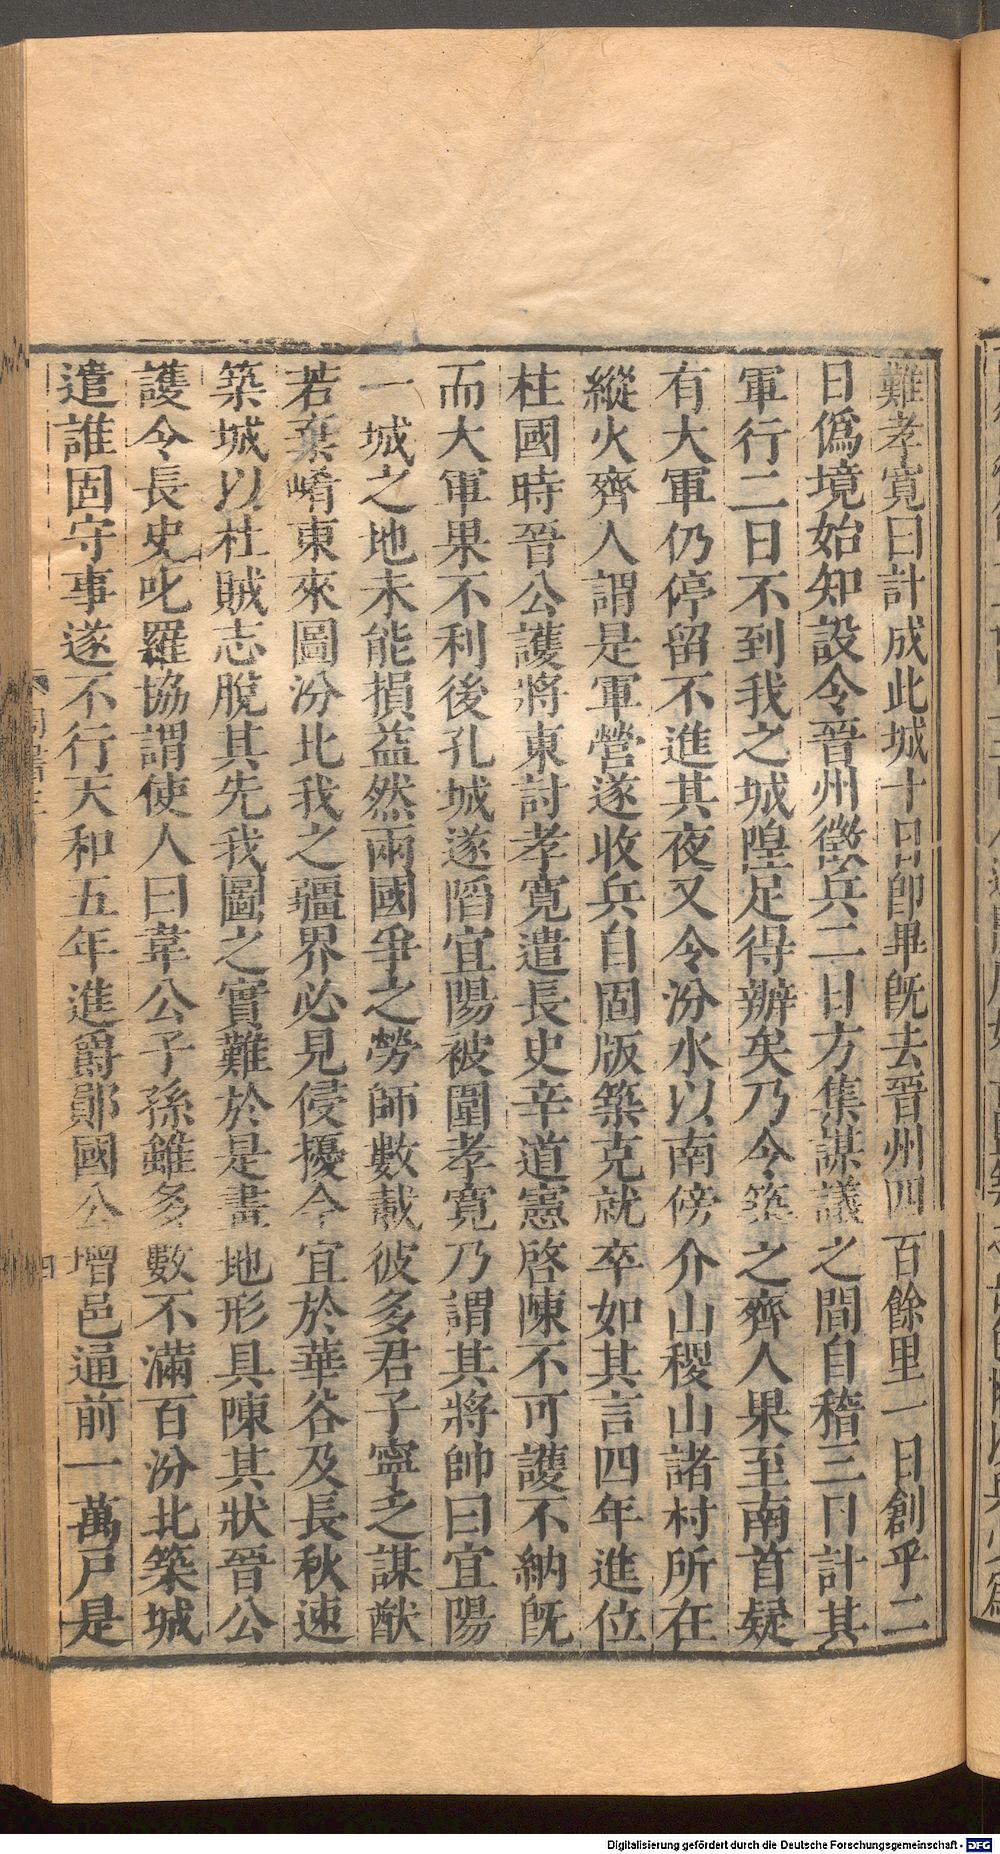 難孝寛曰計成此城十日卽畢旣去晉州四百餘里一日創乎二
日僞境始知設令晉州徴兵二日方集謀議之間自稽三日計其
軍行二日不到我之城隍足得辦矣乃令築之齊人果至南首疑
有大軍仍停留不進其夜又令汾水以南傍介山稷山諸村所在
縱火齊人謂是軍營遂收兵自固版築克就卒如其言四年進位
柱國時晉公護將東討孝寛遣長史辛道憲啓陳不可護不納旣
而大軍果不利後孔城遂陷宜陽被圍孝寛乃謂其將帥曰宜陽
一城之地未能損益然兩國爭之勞師數載彼多君子寧乏謀猷
若棄崤東來圖汾北我之疆界必見侵擾今宜於華谷及長秋速
築城以杜賊志脫其先我圖之實難於是畫地形具陳其狀晉公
護令長史叱羅協謂使人曰韋公子孫雖多數不滿百汾北築城
遣誰固守事遂不行天和五年進爵鄖國公增邑通前一萬戸是
四
Digitalisierung gefördert durch die Deutsche Forschungsgemeinschaft - DFG